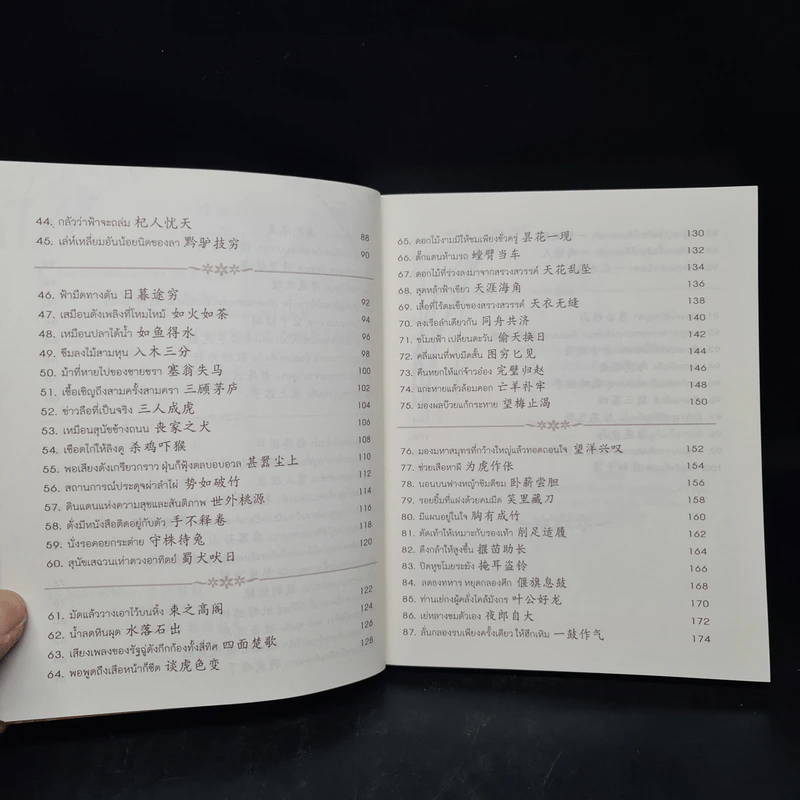 44. กลัวว่าฟ้าจะถล่ม 杞人忧天 88
45. เล่ห์เหลี่ยมอันน้อยนิดของลา 黔驴技穷 90
46. ฟ้ามืดทางตัน 日暮途穷 92
47. เสมือนดังเพลิงที่โหมไหม้ 如火如荼 94
48. เหมือนปลาได้น้ำ 如鱼得水 96
49. ซึมลงไม้สามหุน 入木三分 98
50. ม้าที่หายไปของชายชรา 塞翁失马 100
51. เชื้อเชิญถึงสามครั้งสามครา 三顾茅庐 102
52. ข่าวลือที่เป็นจริง 三人成虎 104
53. เหมือนสุนัขข้างถนน 丧家之犬 106
54. เชือดไก่ให้ลิงดู 杀鸡吓猴 108
55. พอเสียงดังเกรียวกราว ฝุ่นก็ฟุ้งตลบอบอวล 甚嚣尘上 110
56. สถานการณ์ประดุจผ่าลำไผ่ 势如破竹 112
57. ดินแดนแห่งความสุขและสันติภาพ 世外桃源 114
58. ดั่งมีหนังสือติดอยู่กับตัว 手不释卷 116
59. นั่งรอคอยกระต่าย 守株待兔 118
60. สุนัขเสฉวนเห่าดวงอาทิตย์ 蜀犬吠日 120
61. มัดแล้ววางเอาไว้บนหิ้ง 束之高阁 122
62. น้ำลดหินผุด 水落石出 124
63. เสียงเพลงของรัฐฉู่ดังกึกก้องทั้งสี่ทิศ 四面楚歌 126
64. พอพูดถึงเสือหน้าก็ซีด 谈虎色变 128
65. ดอกไม้งามมีให้ชมเพียงชั่วครู่ 昙花一现 130
66. ตั๊กแตนห้ามรถ 螳臂当车 132
67. ดอกไม้ที่ร่วงลงมาจากสรวงสวรรค์ 天花乱坠 134
68. สุดหล้าฟ้าเขียว 天涯海角 136
69. เสื้อที่ไร้ตะเข็บของสรวงสวรรค์ 天衣无缝 138
70. ลงเรือลำเดียวกัน 同舟共济 140
71. ขโมยฟ้า เปลี่ยนตะวัน 偷天换日 142
72. คลี่แผนที่พบมีดสั้น 图穷匕见 144
73. คืนหยกให้แก่จ้าวอ๋อง 完璧归赵 146
74. แกะหายแล้วล้อมคอก 亡羊补牢 148
75. มองผลบ๊วยแก้กระหาย 望梅止渴 150
76. มองมหาสมุทรที่กว้างใหญ่แล้วทอดถอนใจ 望洋兴叹 152
77. ช่วยเสือหาผี 为虎作伥 154
78. นอนบนฟางหญ้าชิมดีขม 卧薪尝胆 156
79. รอยยิ้มที่แฝงด้วยคมมีด 笑里藏刀 158
80. มีแผนอยู่ในใจ 胸有成竹 160
81. ตัดเท้าให้เหมาะกับรองเท้า 削足适履 162
82. ดึงกล้าให้สูงขึ้น 揠苗助长 164
83. ปิดหูขโมยระฆัง 掩耳盗铃 166
84. ลดธงทหาร หยุดกลองศึก 偃旗息鼓 168
85. ท่านเย่กงผู้คลั่งไคล้มังกร 叶公好龙 170
86. เย่หลางชมตัวเอง 夜郎自大 172
87. ลั่นกลองรบเพียงครั้งเดียว ให้ฮึกเหิม 一鼓作气 174